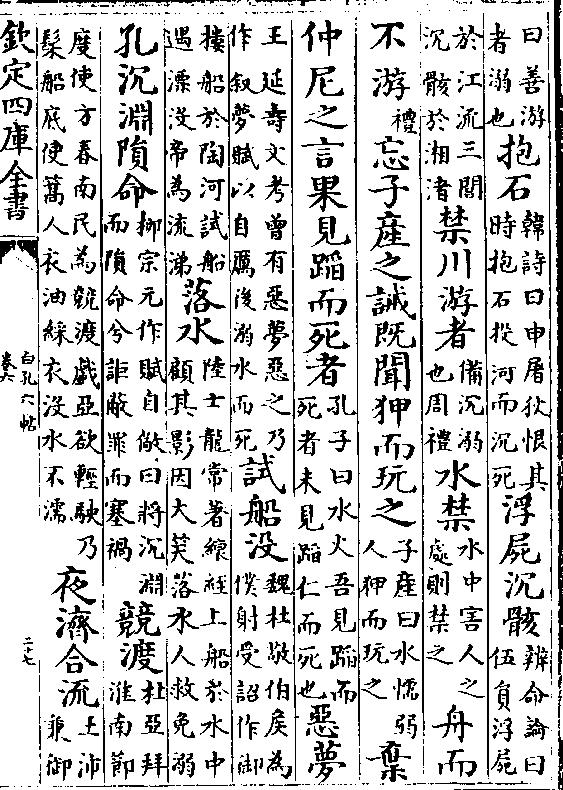 曰善游者溺也抱石韓詩曰申屠狄恨其時抱石從河而沉死浮屍沉骸辨命論曰伍員浮屍
於江流三閭沉骸於湘渚禁川游者備沉溺也周禮水禁水中害人之處則禁之舟而
不游禮忘子產之誡既聞狎而玩之子產曰水懦弱人狎而玩之棄
仲尼之言果見蹈而死者孔子曰水火吾見蹈而死者未見蹈仁而死也惡夢
王延壽文考曾有惡夢惡之乃作叙夢賦以自厲後溺水而死試船没魏杜敬伯侯為僕射受詔作御
樓船於陶河試船遇漂没帝為流涕落水陸士龍常著縗絰上船於水中顧其影因大笑落水人救免溺
孔沉淵隕命柳宗元作賦自儆曰將沉淵而隕命兮詎蔽罪而塞禍競渡杜亞拜淮南節
度使方春南民為競渡戲亞欲輕駛乃髹船底使篙人衣油綵衣没水不濡夜濟合流王沛兼御
欽定四庫全書
白孔六帖
卷六
二十七